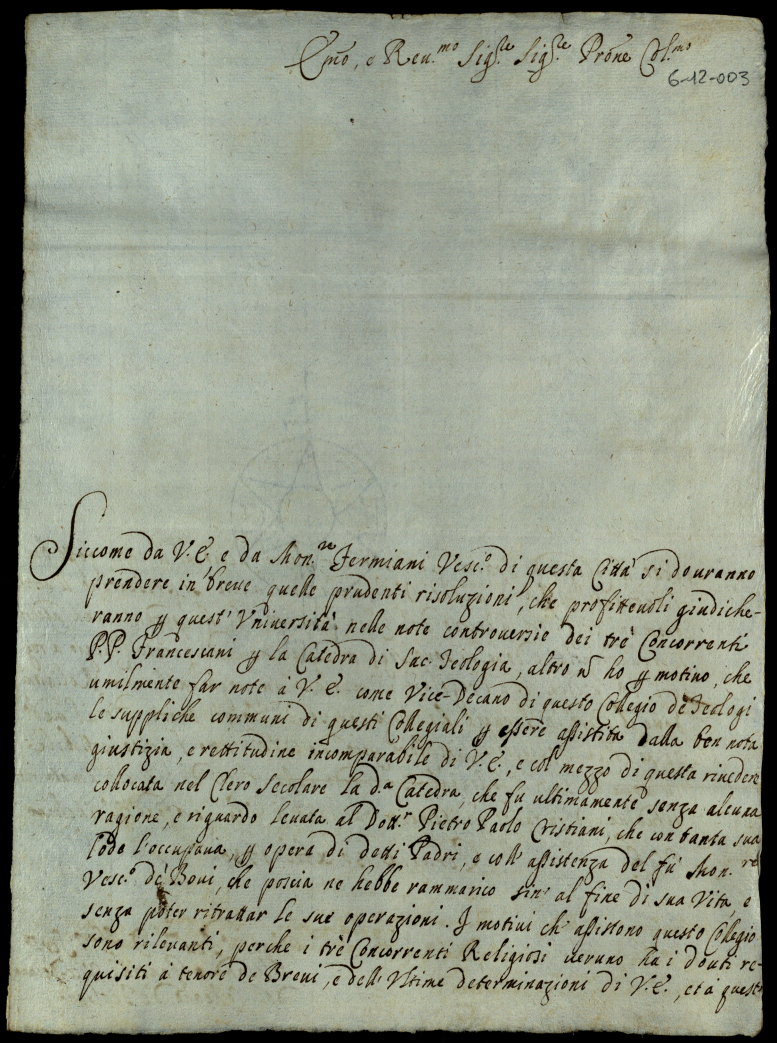 Emo, e Reu.mo Sig.re Sig.re Prone Col.mo
6-12-003
Siccome da V. E. e da Mon.re Fermiani Vesc.o di questa Città si douranno
prendere in breue quelle prudenti risoluzioni, che profitteuoli giudiche-
ranno p quest' Vniversità nelle note controuersie dei trè Concorrenti
P.P. Francescani p la Catedra di Sac. Teologia, altro n ho p motiuo, che
umilmente far note à V. E. come Vice-Decano di questo Collegio de Teologi
le suppliche communi di questi Collegiali p essere assistita dalla ben nota
giustizia, e rettitudine incomparabile di V. E., e col mezzo di questa riuedere
collocata nel Clero secolare la da Catedra, che fù ultimamente senza alcuna
ragione, e riguardo leuata al Dott.r Pietro Paolo Cristiani, che con tanta sua
lode l'occupaua, p opera di detti Padri, e coll' assistenza del fù Mon.re
Vesc.o de Boui, che poscia ne hebbe rammarico sin' al fine di sua Vita, e
senza poter ritrattar le sue operazioni. I motiui ch' assistono questo Collegio
sono rileuanti, perche i trè Concorrenti Religiosi ueruno hà i douti re-
quisiti à tenore de Breui, e dell' Vltime determinazioni di V. E., et à quest